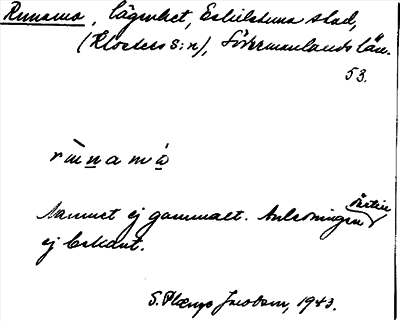 Runamo, lägenhet, Eskilstuna stad,
(Klosters s:n), Södermanlands län.
53.
rùnamò
Namnet ej gammalt. Anledningen därtill
ej bekant.
S. Jacobson, 1943.